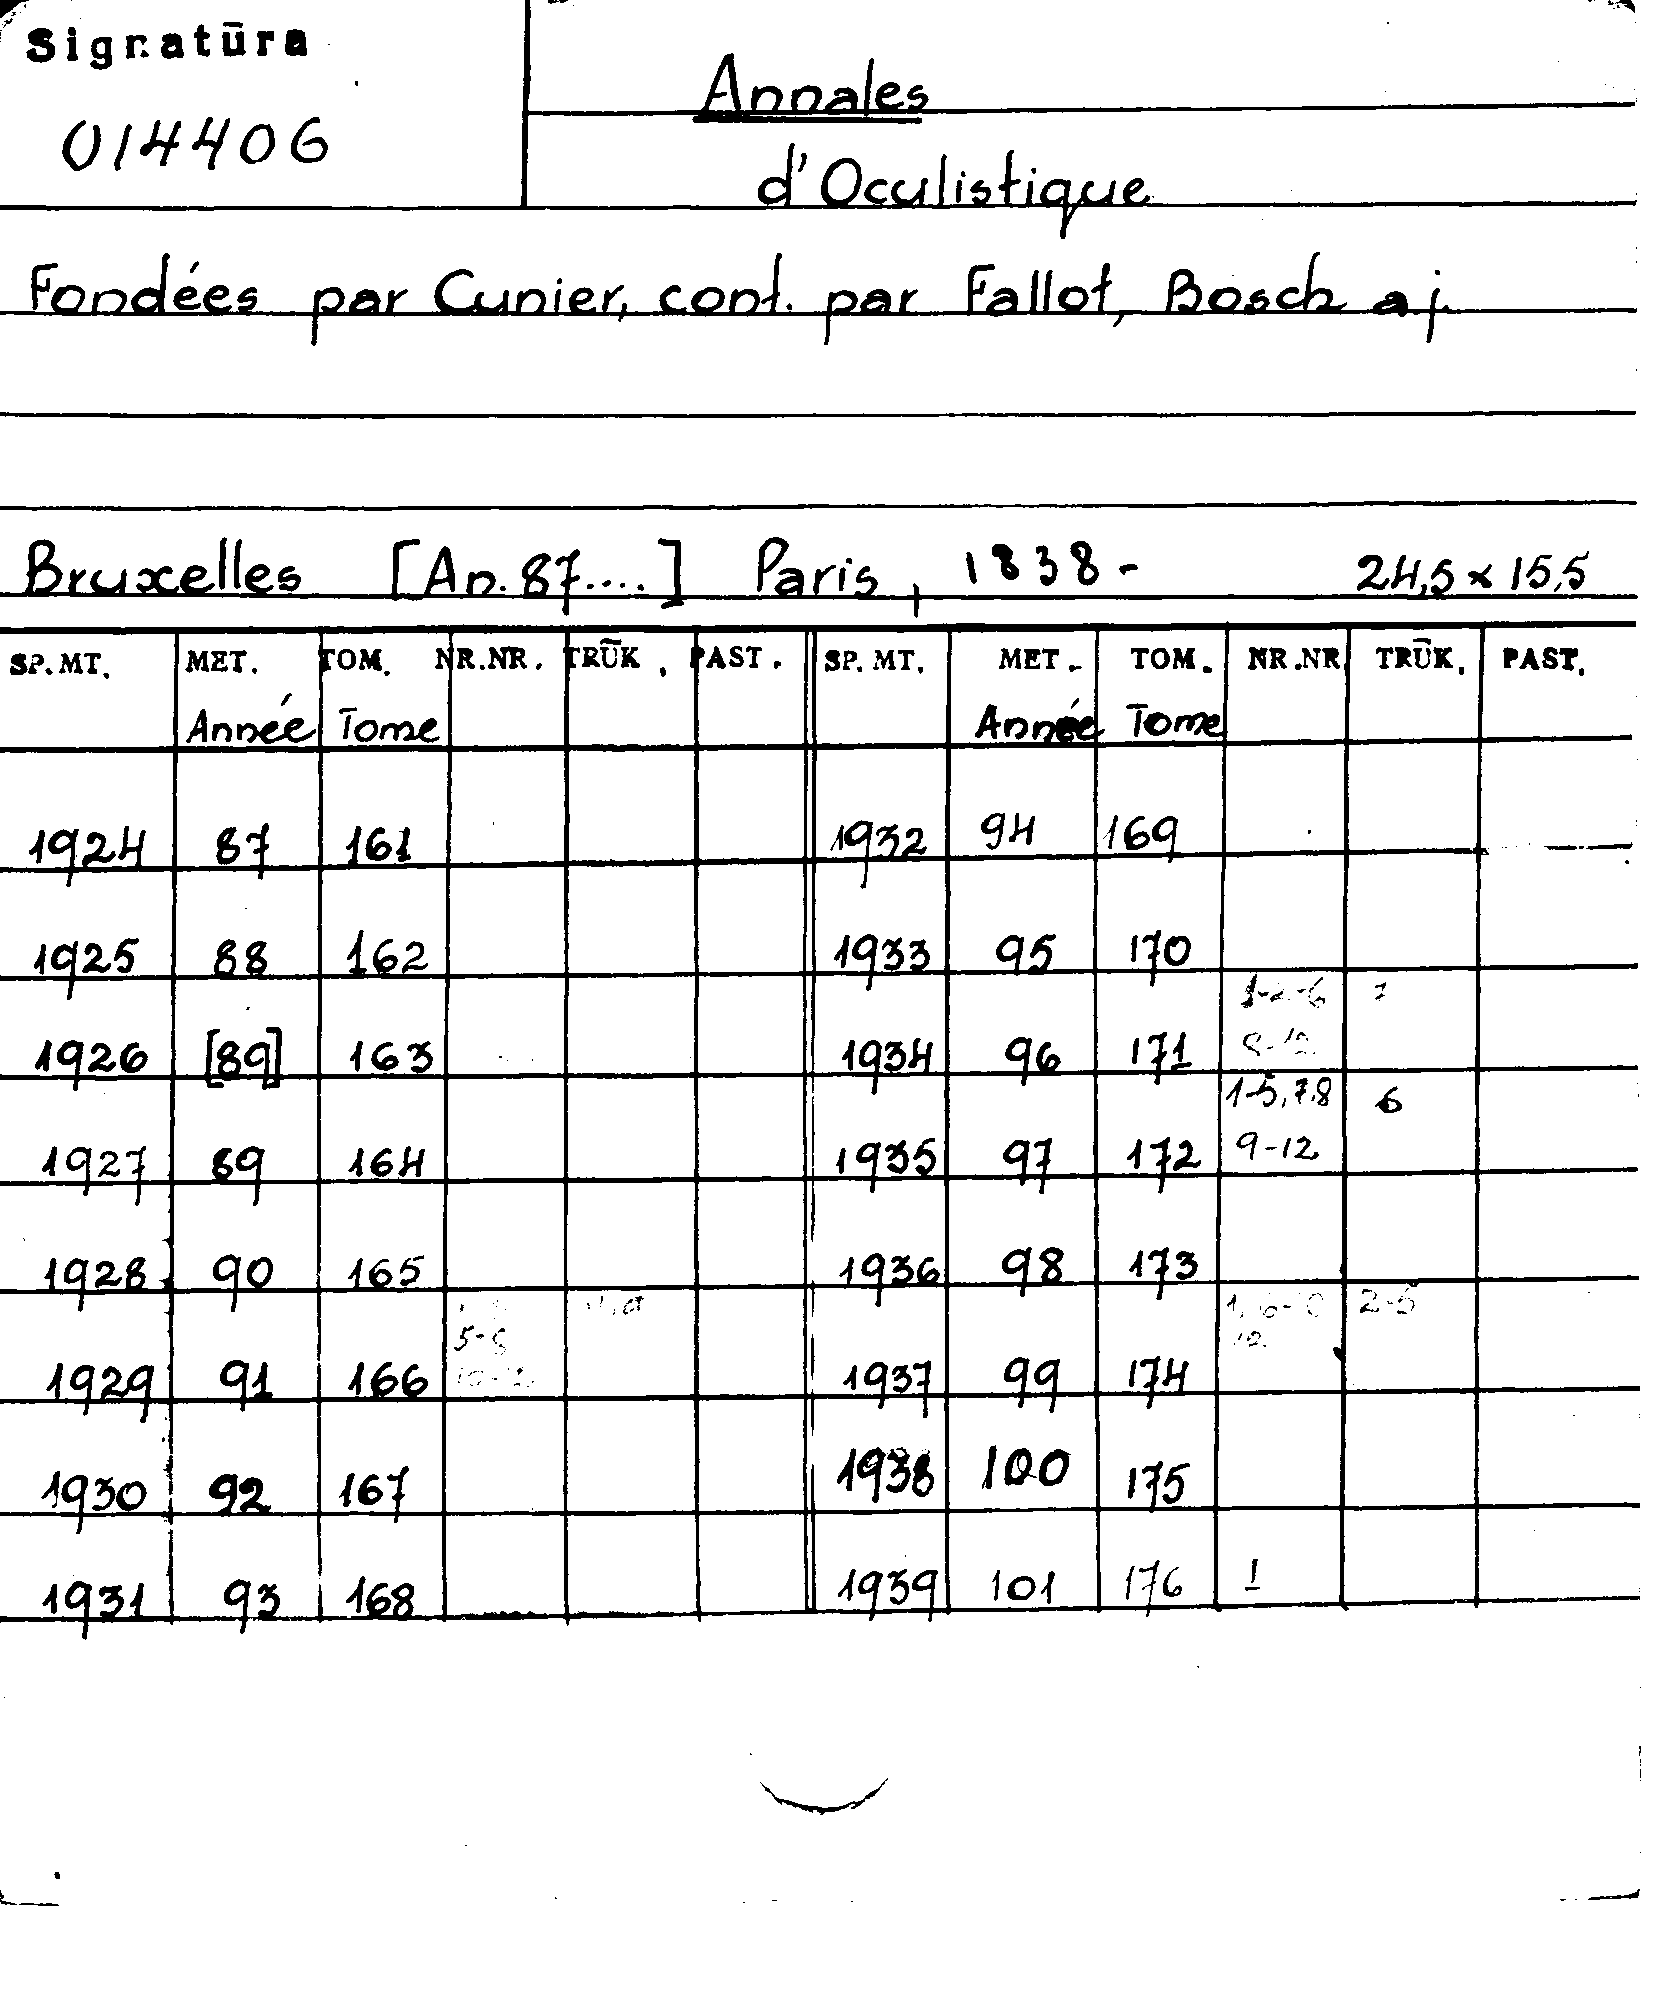 Signatūra
014406
Annales
d'Oculistique
Fondées par Cunier, cont. par Fallot, Bosch a.j.
Bruxelles [An. 87....] Paris, 1838- 24,5 x 15,5
SP. MT. MET. TOM. NR.NR. TRŪK. PAST. SP. MT. MET. TOM. NR.NR TRŪK. PAST.
Année Tome Année Tome
1924 87 161 1932 94 169
1925 88 162 1933 95 170
1926 [89] 163 1934 96 171 7
1927 89 164 1935 97 172 1-5, 7.8 9-12 6
1928 90 165 1936 98 173
1929 91 166 1937 99 174 12 2-5
1930 92 167 1938 100 175
1931 93 168 1939 101 176 1